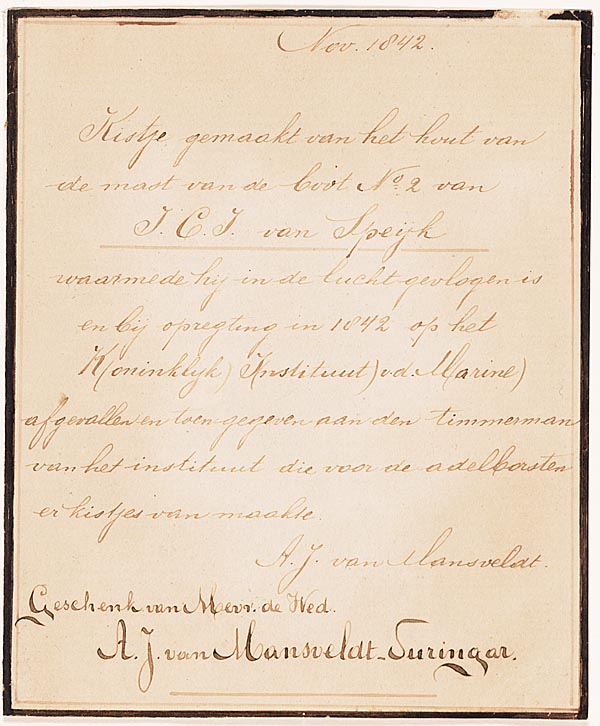 Nov. 1842.
Kistje gemaakt van het hout van
de mast van de boot No. 2 van
J. C. J. van Speijk
waarmede hij in de lucht gevlogen is
en bij opregting in 1842 op het
K(oninklijk) Instituut) v.d. Marine)
afgevallen en toen gegeven aan den timmerman
van het instituut die voor de adelborsten
er kistjes van maakte.
A. J. van Mansveldt.
Geschenk van Mevr. de Wed.
A. J. van Mansveldt-Suringar.